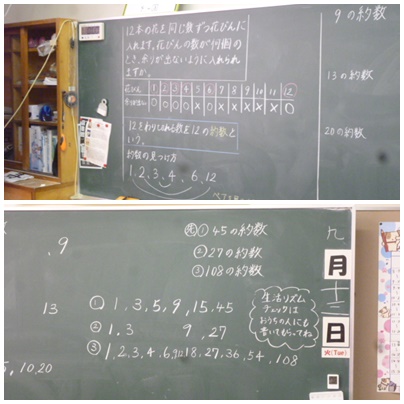 12本の花を同じ数ずつ花びんに
入れます。花びんの数が何個の
とき、あまりが出ないように入れられ
ますか。
花びん 1 2 3 4 5 6 7 8 9 10 11 12
○ ○ ○ ○ × ○ × × × × × ○
12をわりきれる数を12の約数と
いう。
約数の見つけ方
1, 2, 3, 4, 6, 12
9の約数
13の約数
20の約数
, 9
13
, 10, 20
① 45の約数
② 27の約数
③ 108の約数
① 1, 3, 5, 9, 15, 45
② 1, 3 9, 27
③ 1, 2, 3, 4, 6, 9, 12, 18, 27, 36, 54, 108
生活リズム
チェックは
おうちの人にも
書いてもらってね
九
月
十二
日
火(Tue)